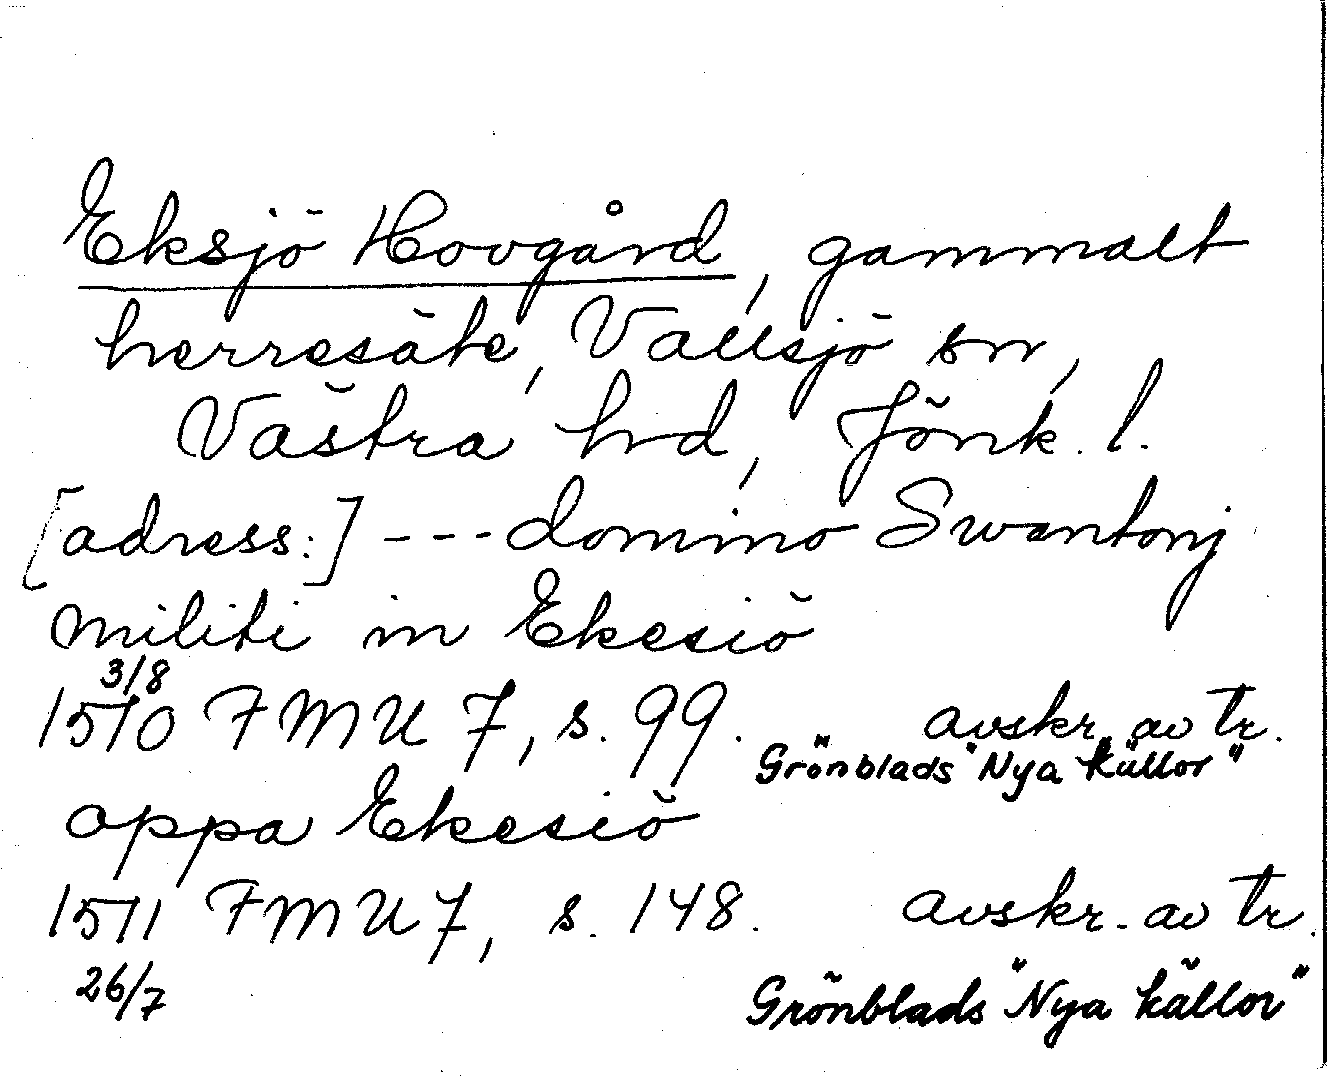 Eksjö Hovgård, gammalt
herresäte, Vallsjö sn,
Västra hd, Jönk. l.
[adress:] --- domino Swantonj
militi in Ekesiö
3/8
1510 FMU 7, s. 99. avskr. av tr.
Grönblads "Nya källor"
oppa Ekesiö
1511 FMU 7, s. 148. avskr. av tr.
26/7
Grönblads "Nya källor"